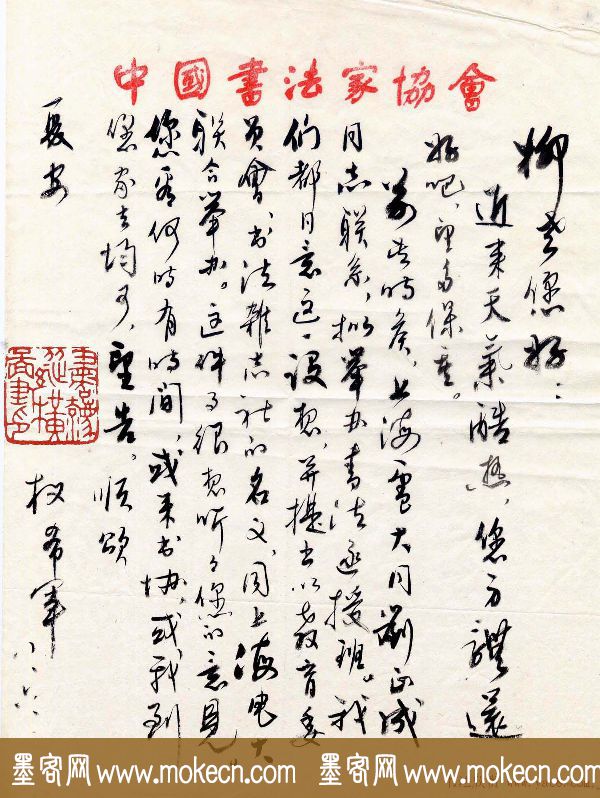 中國書法家協會
柳老您好：
近来天氣酷热，您身體還
好吧，望多保重。
前些時候，上海電大同劉正成
同志联系，拟举办书法函授班。我
们都同意这一设想，并提出以教育委
员會、书法雜志社的名义，同上海电大
联合举办。这件事很想听听您的意見。
您看何時有時间，或来书协，或我到
您家去均可，望告。順頌
夏安
权希军
墨客网 www.mokecn.com 墨客网 www.mokecn.com